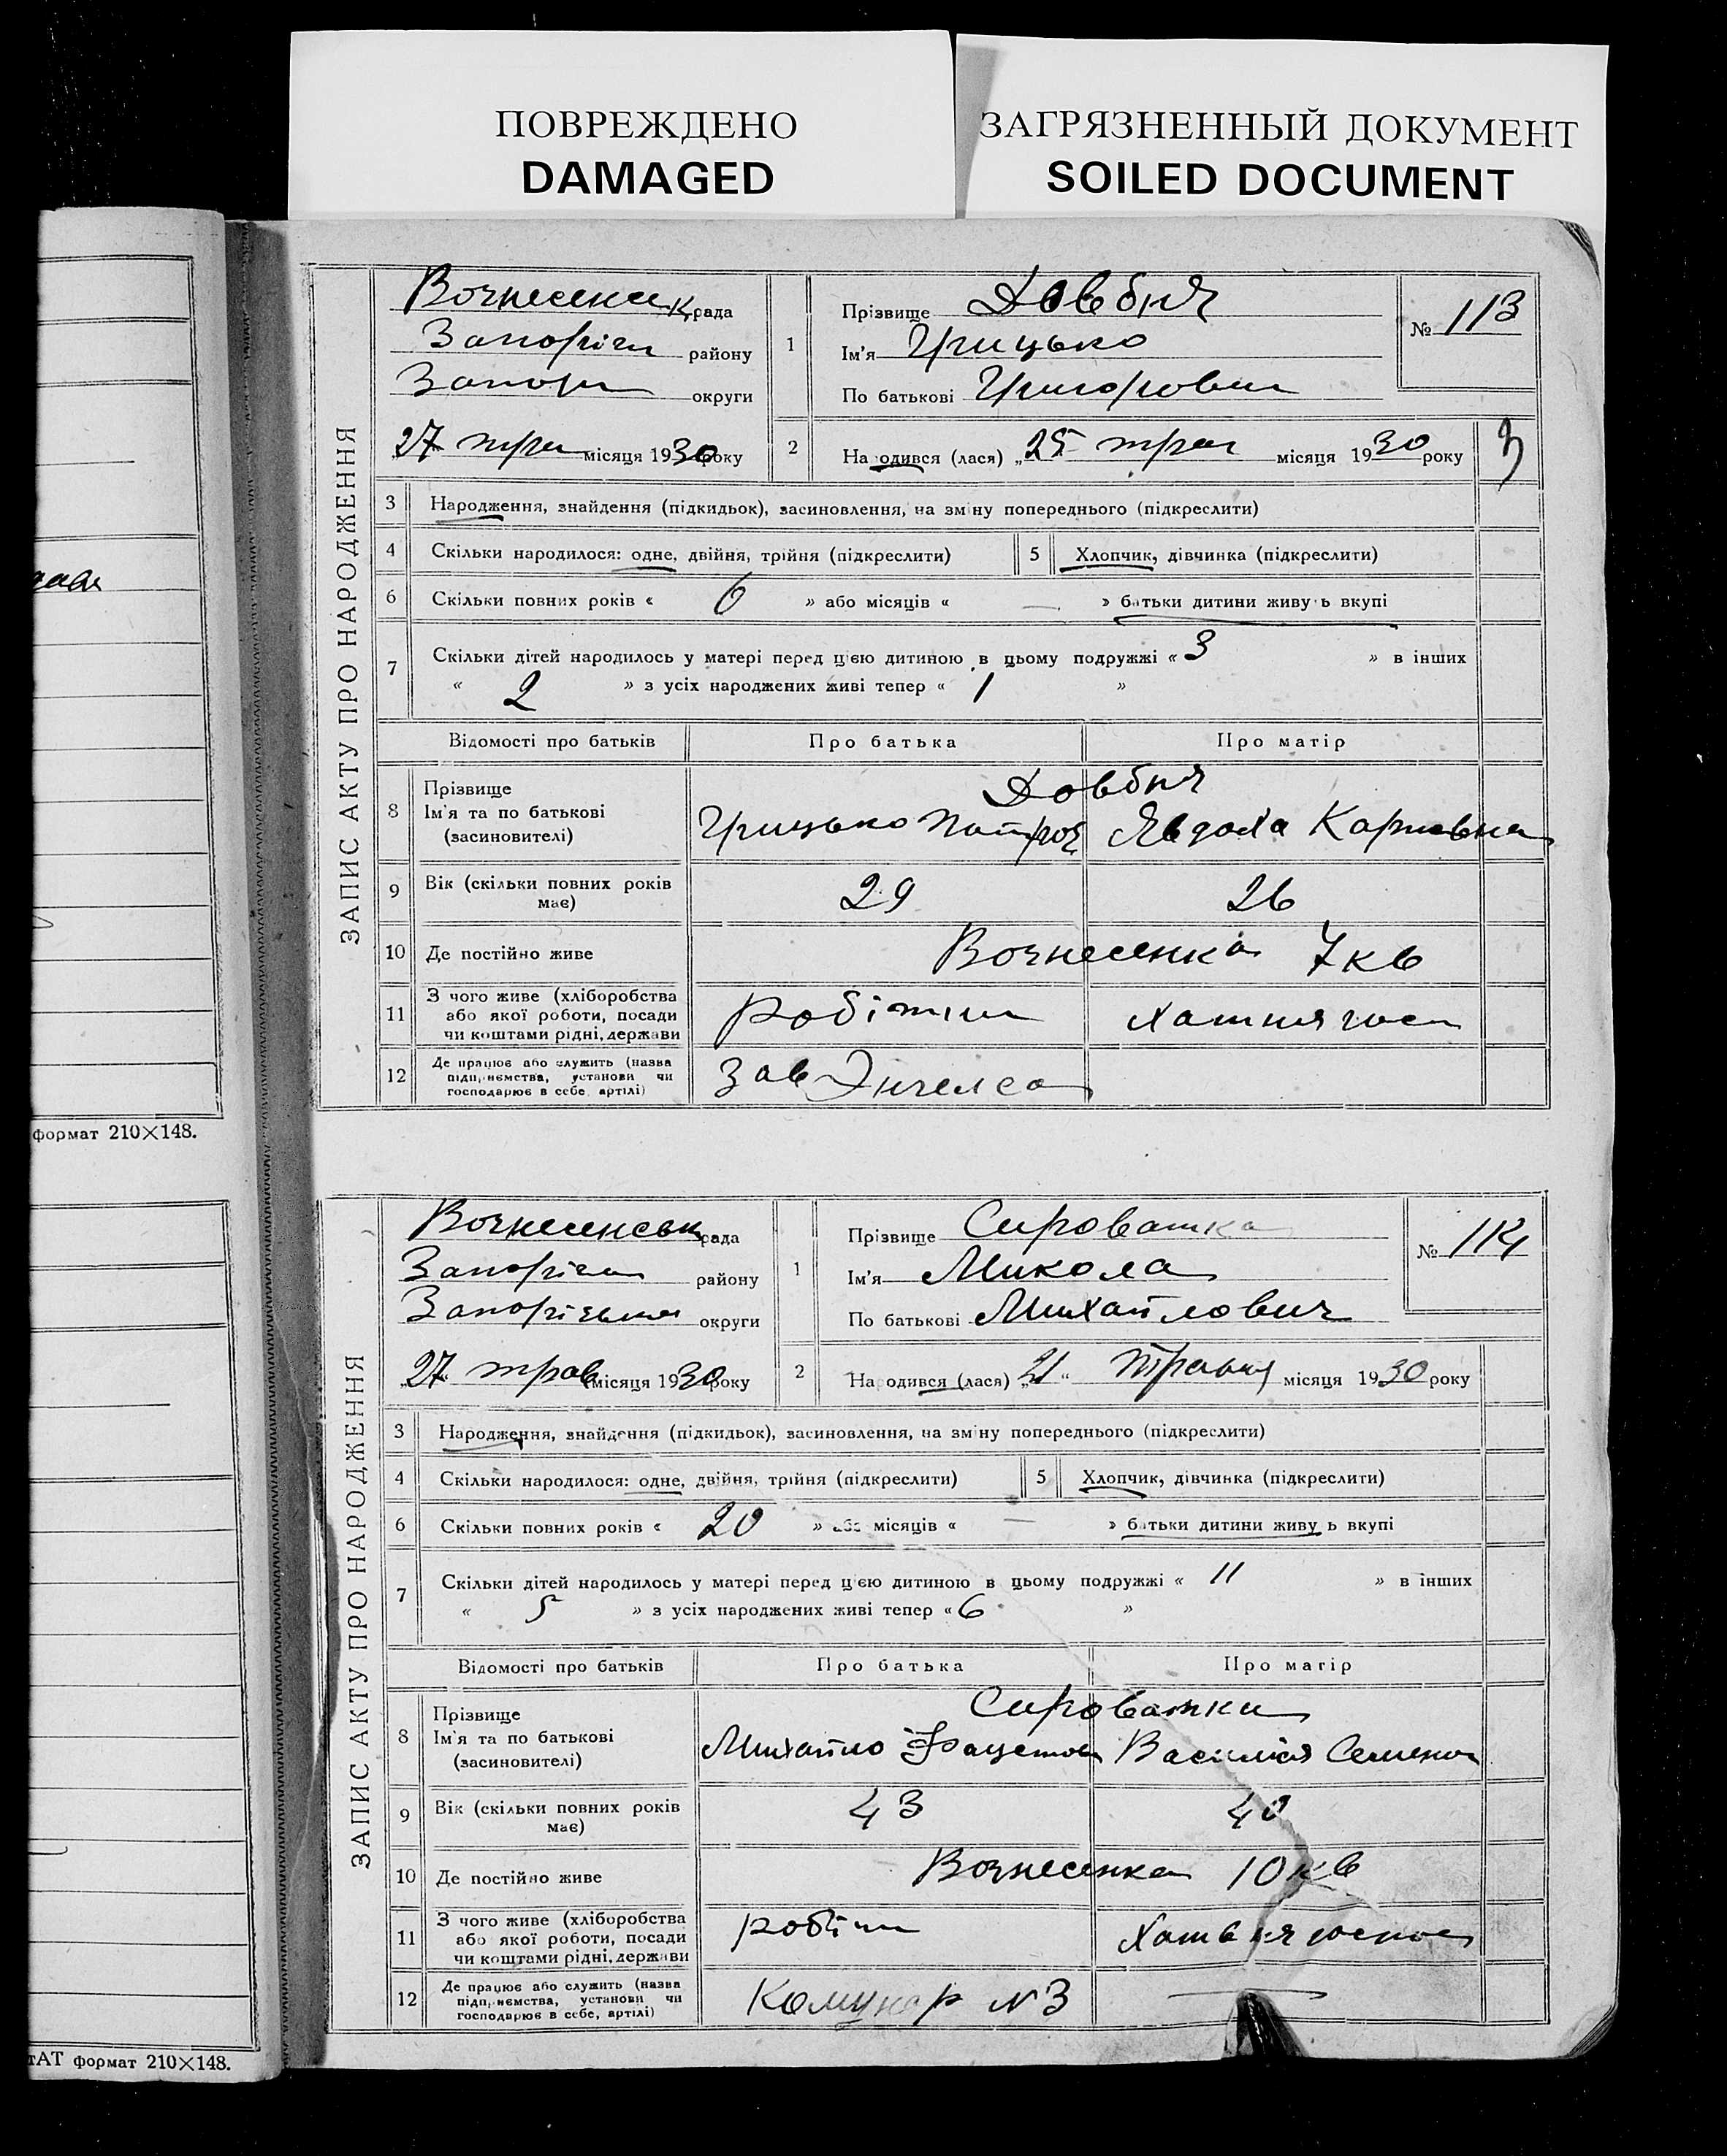 ПОВРЕЖДЕНО
DAMAGED
ЗАГРЯЗНЕННЫЙ ДОКУМЕНТ
SOILED DOCUMENT
формат 210×148.
тАТ формат 210×148.
ЗАПИС АКТУ ПРО НАРОДЖЕННЯ
рада
Запоріж району
Запор округи
27 тра місяця 1930 року
1
Прізвище Довбня
Ім'я Грицько
По батькові Григорович
№ 113
2
Народився (лася) „25 трав місяця 1930 року
3 Народження, знайдення (підкидьок), засиновлення, на зміну попереднього (підкреслити)
4 Скільки народилося: одне, двійня, трійня (підкреслити)
5 Хлопчик, дівчинка (підкреслити)
6 Скільки повних років « 6 » або місяців « — » батьки дитини живуть вкупі
7 Скільки дітей народилось у матері перед цією дитиною в цьому подружжі « 3 » в інших
« 2 » з усіх народжених живі тепер « 1 »
Відомості про батьків Про батька Про матір
8 Прізвище
Ім'я та по батькові
(засиновителі)
Довбня
Грицько Явдоха Карпівна
9 Вік (скільки повних років
має)
29 26
10 Де постійно живе Вознесенка 7 кв
11 З чого живе (хліборобства
або якої роботи, посади
чи коштами рідні, держави
робітни хатня госп
12 Де працює або служить (назва
підприємства, установи чи
господарює в себе, артілі)
Зав Энгелса
ЗАПИС АКТУ ПРО НАРОДЖЕННЯ
Вознесенськ рада
Запоріж району
Запорізька округи
„27“ трав місяця 1930 року
1
Прізвище Сироватка
Ім'я Микола
По батькові Михайлович
№ 114
2
Народився (лася) „21“ Травня місяця 1930 року
3 Народження, знайдення (підкидьок), засиновлення, на зміну попереднього (підкреслити)
4 Скільки народилося: одне, двійня, трійня (підкреслити)
5 Хлопчик, дівчинка (підкреслити)
6 Скільки повних років « 20 » або місяців « — » батьки дитини живуть вкупі
7 Скільки дітей народилось у матері перед цією дитиною в цьому подружжі « 11 » в інших
« 5 » з усіх народжених живі тепер « 6 »
Відомості про батьків Про батька Про матір
8 Прізвище
Ім'я та по батькові
(засиновителі)
Сироватки
Михайло Василіса Семенов
9 Вік (скільки повних років
має)
43 40
10 Де постійно живе Вознесенка 10 кв
11 З чого живе (хліборобства
або якої роботи, посади
чи коштами рідні, держави
робітн
12 Де працює або служить (назва
підприємства, установи чи
господарює в себе, артілі)
Комунар N 3 —